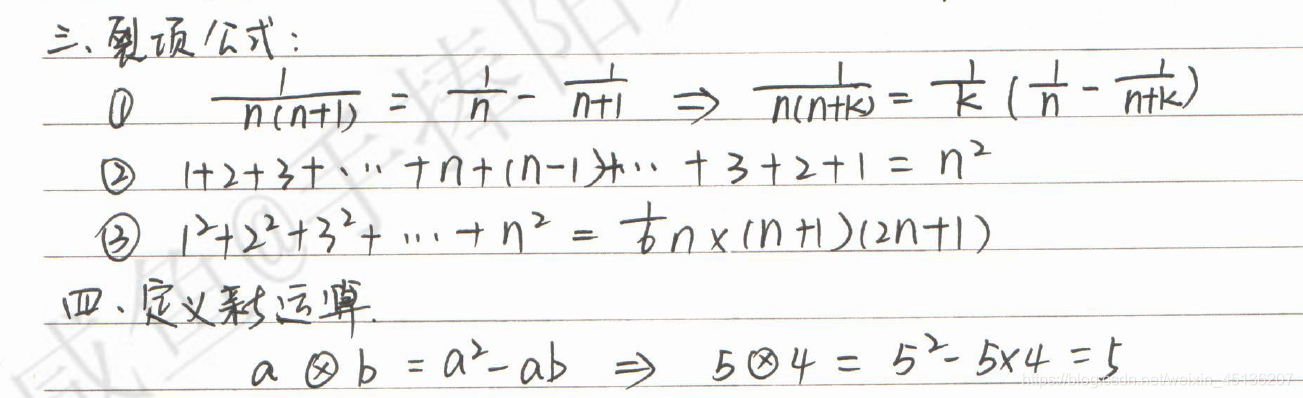 三、裂项公式：
① 1/n(n+1) = 1/n - 1/n+1 ⇒ 1/n(n+k) = 1/k (1/n - 1/n+k)
② 1+2+3+…+n+(n-1)+…+3+2+1 = n²
③ 1²+2²+3²+…+n² = 1/6 n×(n+1)(2n+1)
四、定义新运算.
a ⊗ b = a²-ab ⇒ 5⊗4 = 5²-5×4 = 5
https://blog.csdn.net/weixin_45136207
咸鱼@手捧阳